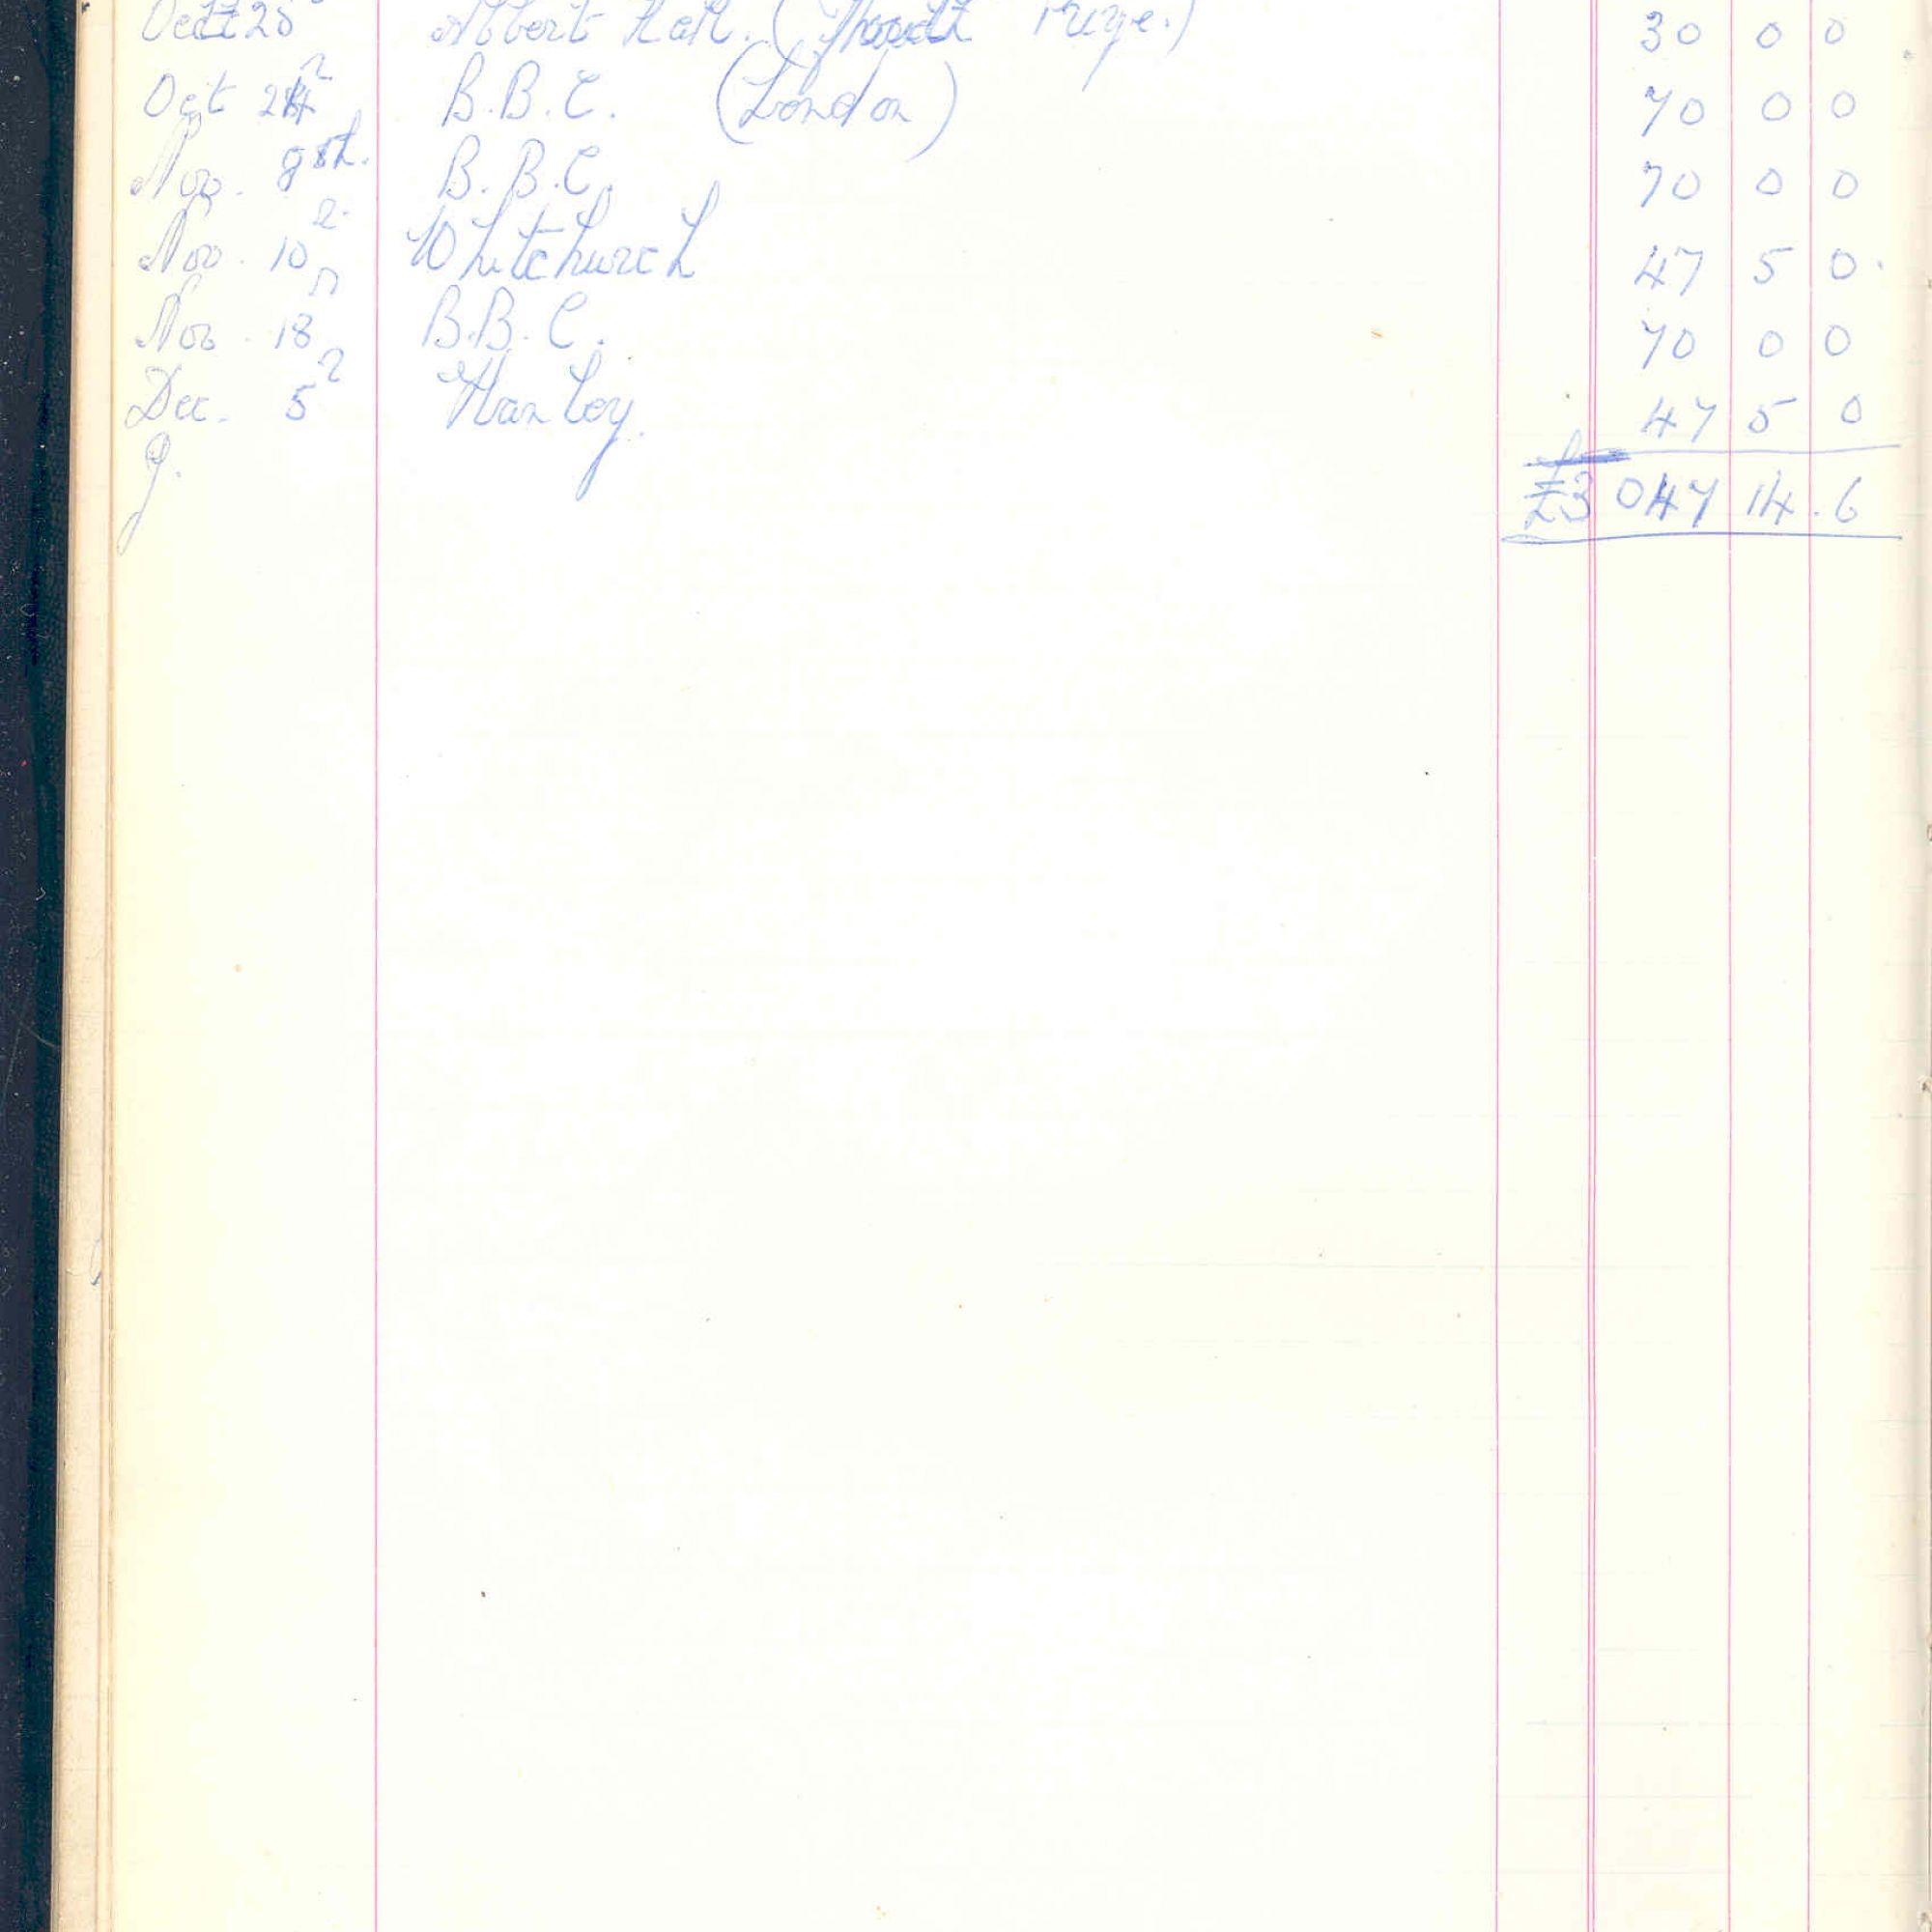 Albert Hall. ( 30 0 0
Oct 24 B.B.C. (London) 70 0 0
Nov. 9th. B.B.C. 70 0 0
Nov. 10 Whitchurch 47 5 0.
Nov. 18 B.B.C. 70 0 0
Dec. 5 Hanley. 47 5 0
£3 047 14.6